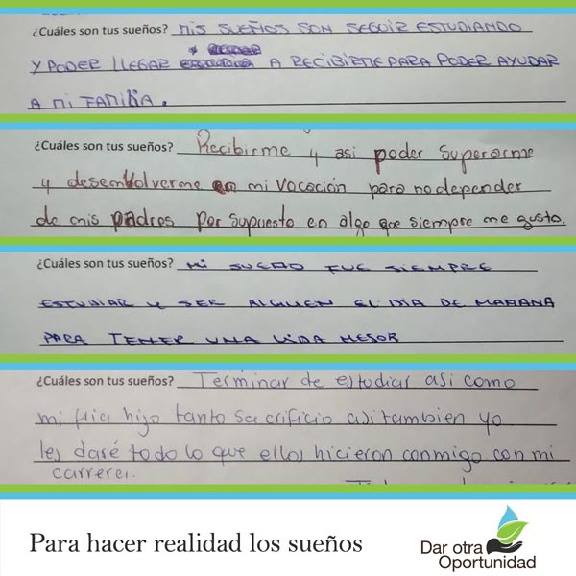 ¿Cuáles son tus sueños? MIS SUEÑOS SON SEGUIR ESTUDIANDO
Y PODER LLEGAR A RECIBIRME PARA PODER AYUDAR
A MI FAMILIA.
¿Cuáles son tus sueños? Recibirme y asi poder superarme
y desembolverme en mi vocación para no depender
de mis padres por supuesto en algo que siempre me gusto.
¿Cuáles son tus sueños? MI SUEÑO FUE SIEMPRE
ESTUDIAR Y SER ALGUIEN EL DIA DE MAÑANA
PARA TENER UNA VIDA MEJOR
¿Cuáles son tus sueños? Terminar de estudiar asi como
mi hijo tanto sacrificio asi tambien yo
les daré todo lo que ellos hicieron conmigo con mi
carrera.
Para hacer realidad los sueños
Dar otra
Oportunidad